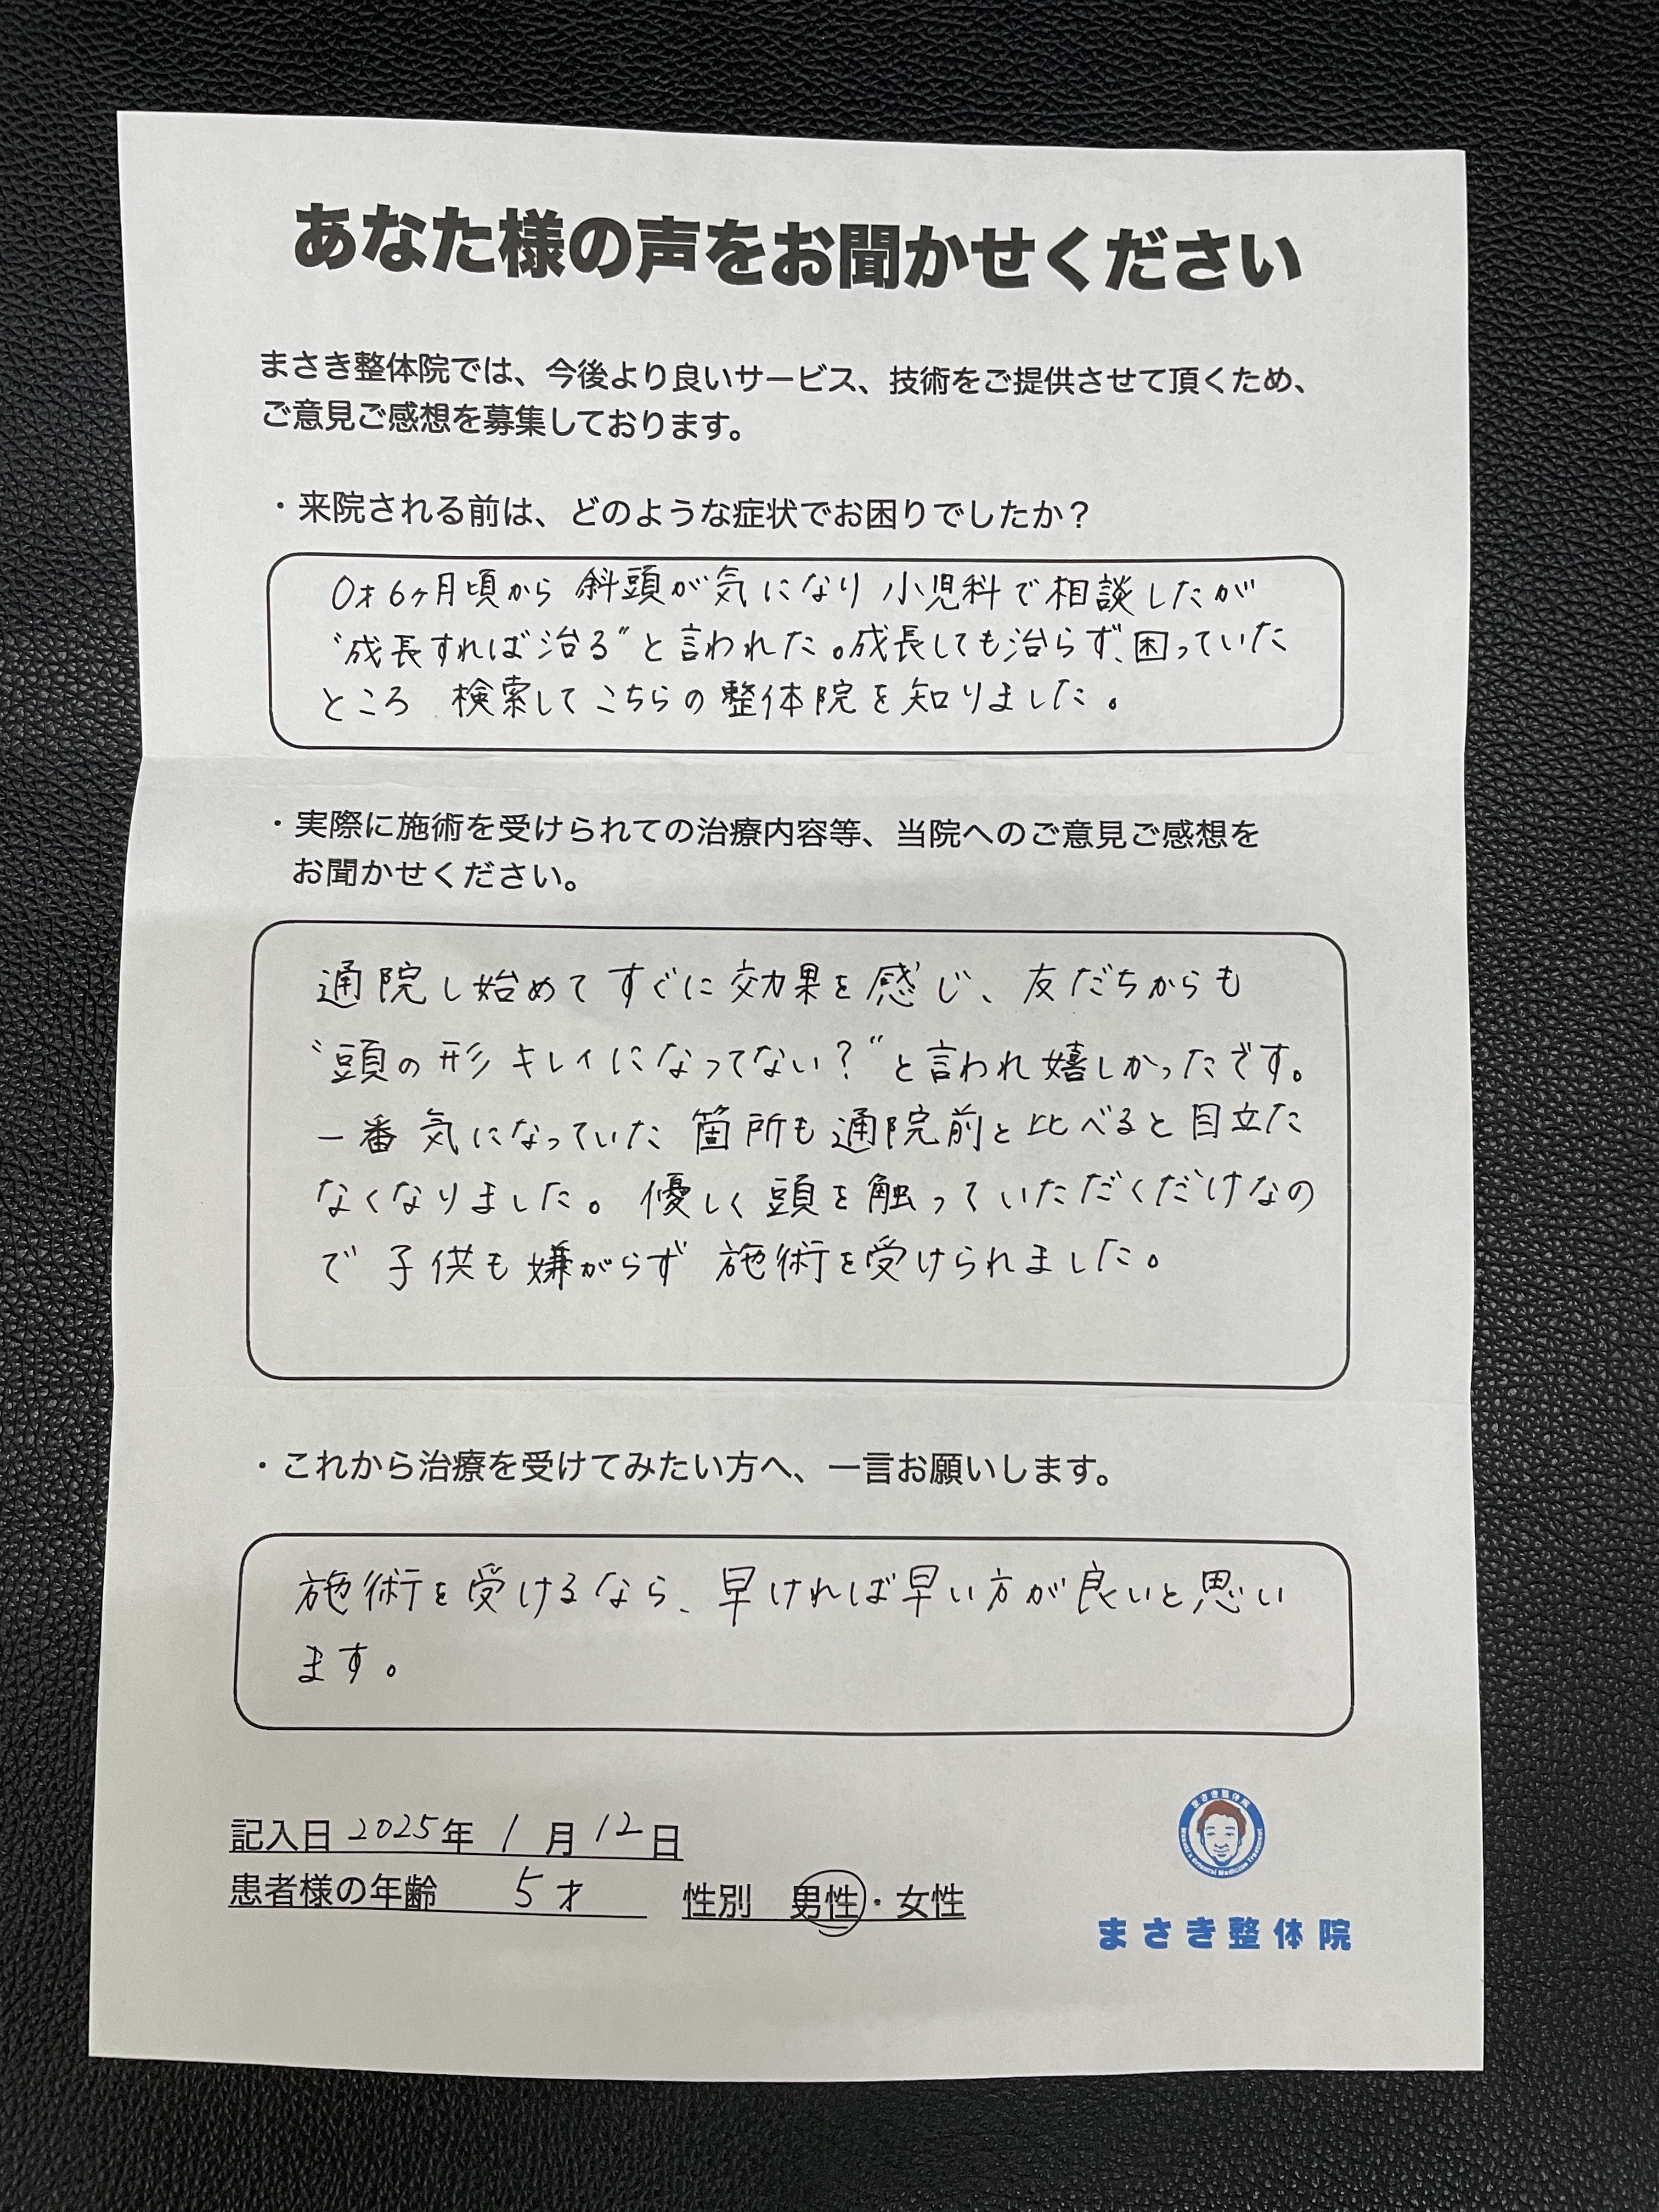 あなた様の声をお聞かせください
まさき整体院では、今後より良いサービス、技術をご提供させて頂くため、
ご意見ご感想を募集しております。
・来院される前は、どのような症状でお困りでしたか？
0才6ヶ月頃から 斜頭が気になり 小児科で相談したが
“成長すれば治る”と言われた。成長しても治らず、困っていた
ところ 検索してこちらの整体院を知りました。
・実際に施術を受けられての治療内容等、当院へのご意見ご感想を
お聞かせください。
通院し始めてすぐに効果を感じ、友だちからも
“頭の形キレイになってない？”と言われ嬉しかったです。
一番気になっていた箇所も通院前と比べると目立た
なくなりました。優しく頭を触っていただくだけなの
で子供も嫌がらず 施術を受けられました。
・これから治療を受けてみたい方へ、一言お願いします。
施術を受けるなら、早ければ早い方が良いと思い
ます。
記入日 2025年 1月 12日
患者様の年齢 5才 性別 男性・女性
まさき整体院
Masaki's Oriental Medicine Treatment
まさき整体院